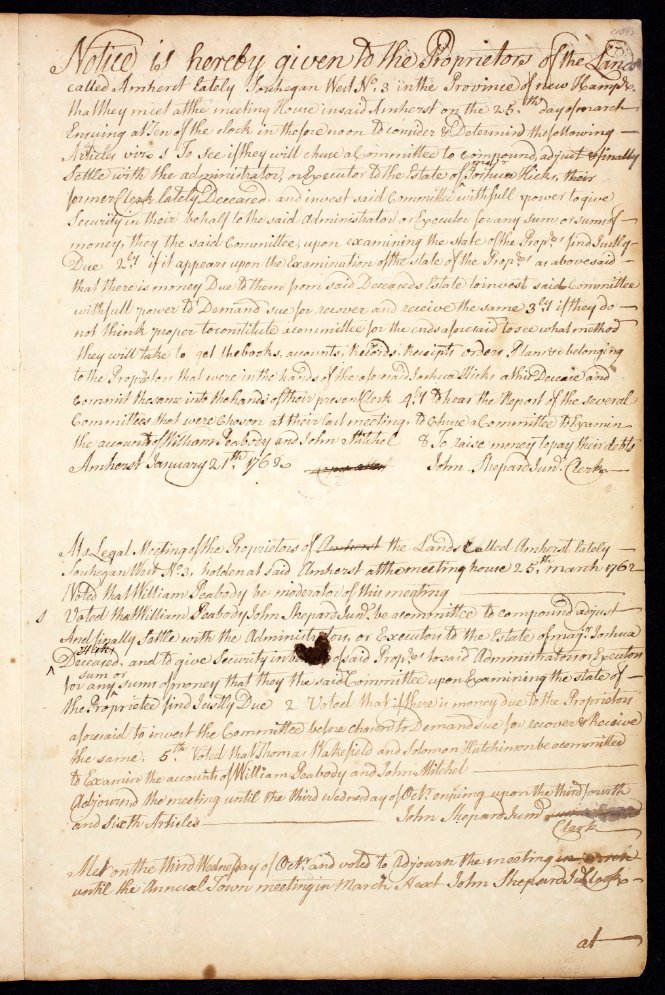 Notice is hereby given to the Proprietors of the Lands
called Amherst lately Souhegan West No. 3 in the Province of new Hampr.
that they meet at the meeting House in said Amherst on the 25.th day of march
Ensuing at Ten of the clock in the forenoon to consider & Determind the following
Articles viz 1 To see if they will chuse a Committee to compound, adjust & finally
Settle with the administrator, or Executor to the Estate of Majr. Joshua Hicks, their
former Clerk lately Deceased, and invest said Committee with full power to give
Security in their behalf to the said Administrator or Executor for any sum or sums of
money, they the said Committee, upon examining the state of the Proprs. find Justly
Due 2ly if it appears upon the Examination of the state of the Proprs. as abovesaid
that there is money Due to them from said Deceaseds Estate to invest said Committee
with full power to Demand sue for recover and receive the same 3ly if they do
not think proper to constitute a committee for the ends aforesaid to see what method
they will take to get the books, accounts, Records, Receipts orders, Plans &c belonging
to the Proprietors that were in the hands of the aforesaid Joshua Hicks at his Decease and
Commit the same into the hands of their present Clerk 4ly to hear the Report of the several
Committees that were Chosen at their last meeting, to Chuse a Committee to Examin
the accounts of William Peabody and John Mitchel & To raise money to pay their debts
Amherst January 21.th 1762 John Shepard Junr. Clerk
At a Legal Meeting of the Proprietors of Amherst the Lands Called Amherst lately
Souhegan West No. 3, holden at said Amherst at the meeting house 25.th march 1762
Voted that William Peabody be moderator of this meeting
1 Voted that William Peabody John Shepard Junr. be a committee to compound adjust
And finally Settle with the Administrators, or Executors to the Estate of majr. Joshua
Hicks Deceased, and to give Security in of said Proprs. to said Administrator or Executor
for any sum or sums of money that they the said Committee upon Examining the state of
the Proprietee find Justly Due 2 Voted that if there is money due to the Proprietors
aforesaid to invest the Committee before chosen to Demand sue for recover & Receive
the same. 5th Voted that Thomas Wakefield and Solomon Hutchinson be a committee
to Examin the accounts of William Peabody and John Mitchel
Adjournd the meeting until the third wednesday of Octr. ensuing upon the third fourth
and sixth Articles John Shepard Junr.
Clerk
Met on the third Wednesday of Octr. and voted to Adjourn the meeting
until the Annual Town meeting in March Next John Shepard Jur Clerk
at